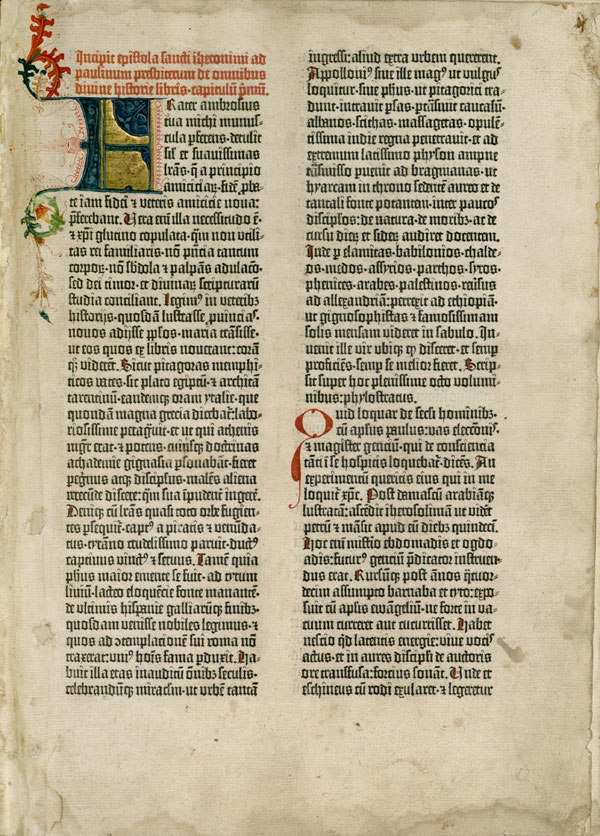 Incipit epistola sancti iheronimi ad
paulinum presbiterum de omnibus
divine historie libris·capitulū pmū.
Frater ambrosius
tua michi munus-
cula pferens·detulit
sil̄ et suavissimas
lrās·q̄ a principio
amiciciaꝝ·fidē pba-
te iam fidei ⁊ veteris amicicie nova:
pferebant. Vera em̄ illa necessitudo ē·
⁊ xp̄i glutino copulata·qm̄ non utili-
tas rei familiaris·nō pn̄cia tantum
corpoꝝ·nō sbdola ⁊ palpās adulaco·
sed dei timor·et divinaꝝ scripturarū
studia conciliant. Legimꝰ in veteribꝫ
historijs·quosdā lustrasse puincias·
novos adijsse pplos·maria trāsisse·
ut eos quos ex libris noverant: corā
qꝫ viderēt. Sicut pitagoras memphi-
ticos vates·sic plato egiptū·⁊ architā
tarentinū·eandemqꝫ oram ytalie·que
quondā magna grecia dicebat̄:labo-
riosissime peragvit·et ut qui athenis
mgr̄ erat·⁊ potens·cuiusqꝫ doctrinas
achademie gignasia psonabāt·fieret
pegrinus atqꝫ discipulus·malēs aliena
verecūde discere:qm̄ sua īpudent̄ ingerē.
Deniqꝫ cū lrās quasi toto orbe fugien-
tes psequit̄·captꝰ a piratis ⁊ venūda-
tus·tyrāno crudelissimo paruit·ductꝰ
captivus vinctꝰ ⁊ servus. Tamē quia
phus maior emente se fuit·ad tytum
liviū·lacteo eloquēcie fonte manantē·
de ultimis hispanie galliarūqꝫ finibꝫ·
quosdam venisse nobiles legimus·⁊
quos ad ɔtemplationē sui roma nō
traxerat:uniꝰ hoīs fama pduxit. Ha-
buit illa etas inauditū oībꝫ seculis·
celebrandūqꝫ miraclm·ut urbē tantā
ingressi:aliud extra urbem quererent.
Appolloniꝰ sive ille magꝰ ut vulgꝰ
loquitur·sive phus·ut pitagorici tra-
dunt·intravit psas·ptrāsivit caucasū·
albanos·scithas·massagetas·opulē-
tissima indie regna penetravit·et ad
extremum latissimo physon ampne
trāsmisso pvenit ad bragmanas·ut
hyarcam in throno sedentē aureo et de
tantali fonte potantem·inter paucos
discipl̄os:de natura·de moribꝫ·ac de
cursu dieꝝ et sideꝝ audiret docentem.
Inde p elamitas·babilonios·chalde-
os·medos·assyrios·parthos·syros·
phenices·arabes·palestinos·reversus
ad allexandriā:perrexit ad ethiopiā·
ut gignosophistas ⁊ famosissimam
solis mensam videret in sabulo. In-
venit ille vir ubiqꝫ qd̄ disceret·et semp
proficiēs·semp se melior fieret. Scrip-
sit super hoc plenissime octo volumi-
nibus:phylostratus.
Quid loquar de secl̄i hominibꝫ·
cū aplūs paulus:vas electōnis·
⁊ magister gentiū·qui de consciencia
tāti ī se hospitis loquebat̄·dicēs. An
experimentū queritis eius qui in me
loquit̄ xpc̄. Post damascū arabiāqꝫ
lustratā:ascēdit iherosolimā ut vidēt
petrū ⁊ māsit apud eū diebꝫ quindecī.
Hoc enī misterio ebdomadis et ogdo-
adis:futurꝰ gentiū pdicator instruen-
dus erat. Rursūqꝫ post ānos q̄tuor-
decim assumpto barnaba et tyto:expo-
suit cū aplīs ewāgeliū·ne forte in va-
cuum curreret aut cucurrisset. Habet
nescio qd̄ latentis energie:vive vocis
actus·et in aures discipl̄i de auctoris
ore transfusa:forcius sonat. Unde et
eschineus cū rodi exularet·⁊ legeretur